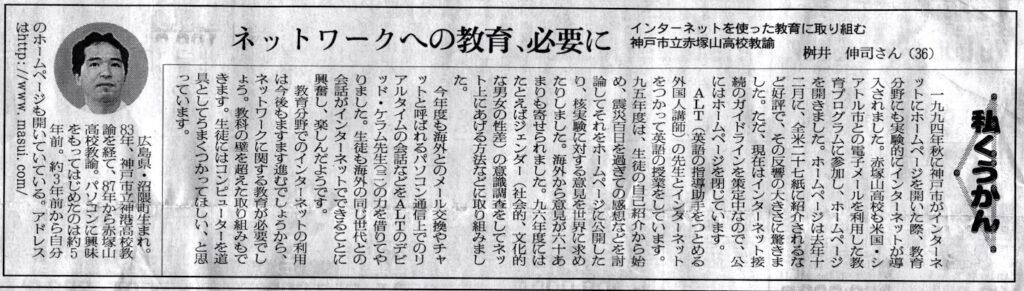 私くうかん
インターネットを使った教育に取り組む
神戸市立赤塚山高校教諭
桝井 伸司さん(36)
ネットワークへの教育、必要に
一九九四年秋に神戸市がインターネ
ットにホームページを開いた際、教育
分野にも実験的にインターネットが導
入されました。赤塚山高校も米国・シ
アトル市との電子メールを利用した教
育プログラムに参加し、ホームページ
を開きました。ホームページは去年十
二月に、全米二十七紙で紹介されるな
ど好評で、その反響の大きさに驚きま
した。ただ、現在はインターネット接
続のガイドラインを策定中なので、公
にはホームページを閉じています。
ALT(英語の指導助手をつとめる
外国人講師)の先生とインターネット
をつかって英語の授業をしています。
九五年度は、生徒の自己紹介から始
め、震災百日を過ぎての感想などを討
論してそれをホームページに公開した
り、核実験に対する意見を世界に求め
たりしました。海外から意見が六十あ
まりも寄せられました。九六年度には
たとえばジェンダー(社会的、文化的
な男女の性差)の意識調査をしてネッ
ト上にあげる方法などに取り組みまし
た。
今年度も海外とのメール交換やチャ
ットと呼ばれるパソコン通信上でのリ
アルタイムの会話などをALTのデビ
ッド・ケラム先生(三〇)の力を借りてや
りました。生徒も海外の同じ世代との
会話がインターネットでできることに
興奮し、楽しんだようです。
教育分野でのインターネットの利用
は今後もますます進むでしょうから、
ネットワークに関する教育が必要でし
ょう。教科の壁を超えた取り組みもで
きます。生徒にはコンピューターを道
具としてうまくつかってほしい、と思
っています。
広島県・沼隈町生まれ。
83年、神戸市立神港高校教
諭を経て、87年から赤塚山
高校教諭。パソコンに興味
をもってはじめたのは約5
年前。約3年前から自分
のホームページも開いている。アドレス
はhttp://www.masui.com/